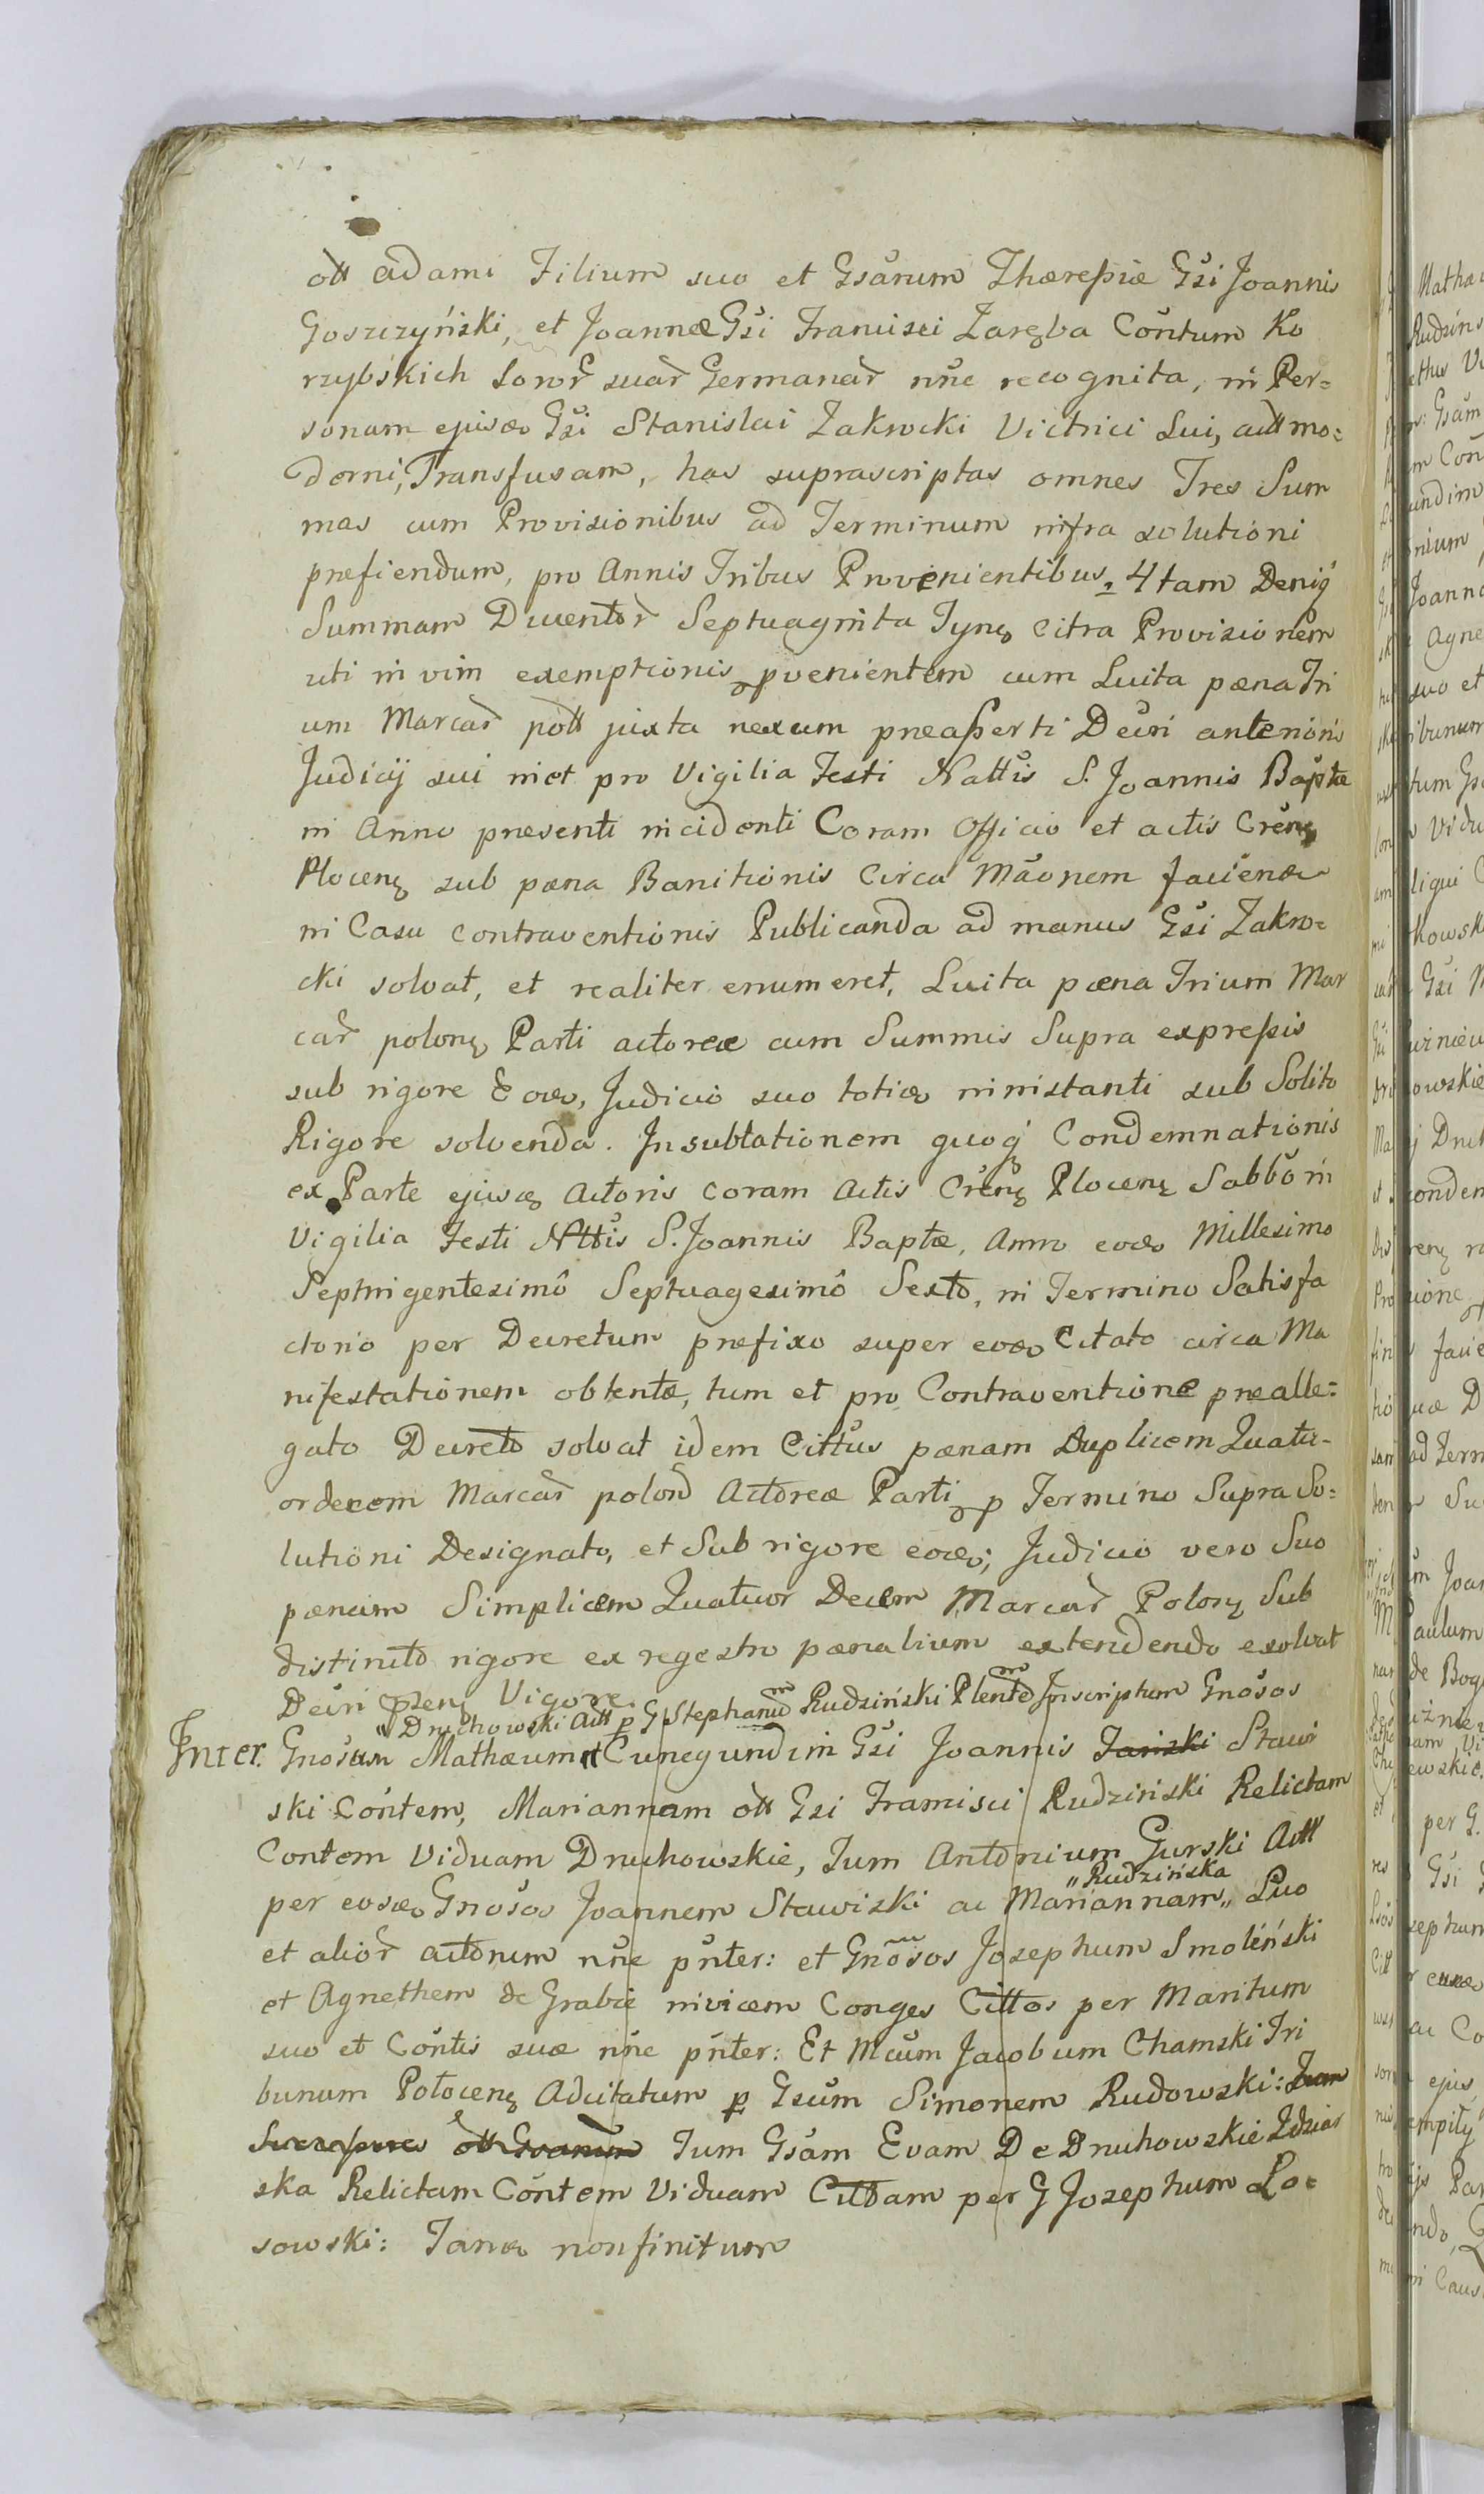 ott Adami Filium suo et Gsarum Thæreßiæ Gsi Joannis
Goszczyński, et Joannæ Gsi Francisci Zaręba Contum Ko
rzybskich Soror suar Germanar nunc recognita, in Per=
sonam ejusd Gsi Stanislai Zakrocki Victrici Sui, actt mo=
derni, Transfusam, has suprascriptas omnes Tres Sum
mas cum Provisionibus ad Terminum infra solutioni
prefiendum, pro Annis Tribus Provenientibus, 4tam Deniq
Summam Ducentor Septuaginta Tynę citra Provisionem
uti in vim exemptionis pvenientem cum Luita pæna Tri
um Marcar pott juxta nexum præaßerti Decri anterioris
Judicij sui met pro Vigilia Festi Nattis S. Joannis Baptæ
in Anno presenti incidenti Coram Officio et actis Crenę
Plocenę sub pæna Banitionis Circa Maonem faciend
in Casu contraventionis Publicanda ad manus Gsi Zakro=
cki solvat, et realiter enumeret, Luita pæna Trium Mar
car polonę Parti actoreæ cum Summis Supra expreßis
sub rigore eod, Judicio suo totid ministanti sub Solito
Rigore solvenda. In sublationem quoq Condemnationis
ex Parte ejusd Actoris coram Actis Crenę Plocenę Sabbo in
Vigilia Festi Nttis S. Joannis Baptæ, Anno eod Millesimo
Septingentesimô Septuagesimô Sexto, in Termino Satisfa
ctorio per Decretum præfixo super eod Citato circa Ma
nifestationem obtentæ, tum et pro Contraventione præalle=
gato Decreto solvat idem Cittus pænam Duplicem Quatu-
ordecem Marcar polon Actoreæ Parti p Termino Supra So=
lutioni Designato, et Sub rigore eod; Judicio vero Suo
pænam Simplicem Quatuor Decem Marcar Polonę Sub
distincto rigore ex regestro pænalium extendendo exolvat
Decri psenę Vigore.
" Druchowski Actt p G Stephanum Rudziński Plente Inscriptum Gnosos
Inter. Gnosum Mathæum et Cunegundim Gsi Joannis Tański Stawi
ski Contem, Mariannam ott Gsi Francisci Rudziński Relictam
Contem Viduam Druchowskie, Tum Antonium Gurski Actt
per eosd Gnosos Joannem Stawiski ac Mariannam „ Rudzińska Suo
et alior actorum nne pnter: et Gnosos Josephum Smoleński
et Agnethem de Grabie invicem Conges Cittos per Maritum
suo et Contis suæ nne pnter: Et Mcum Jacobum Chamski Tri
bunum Polocenę Adcitatum p Gsum Simonem Rudowski: Tum
Successores ott Gsarum Tum Gsam Evam De Druchowskie Zdziar
ska Relictam Contem Viduam Cittam per G Josephum Lo=
sowski: Tand non finitum